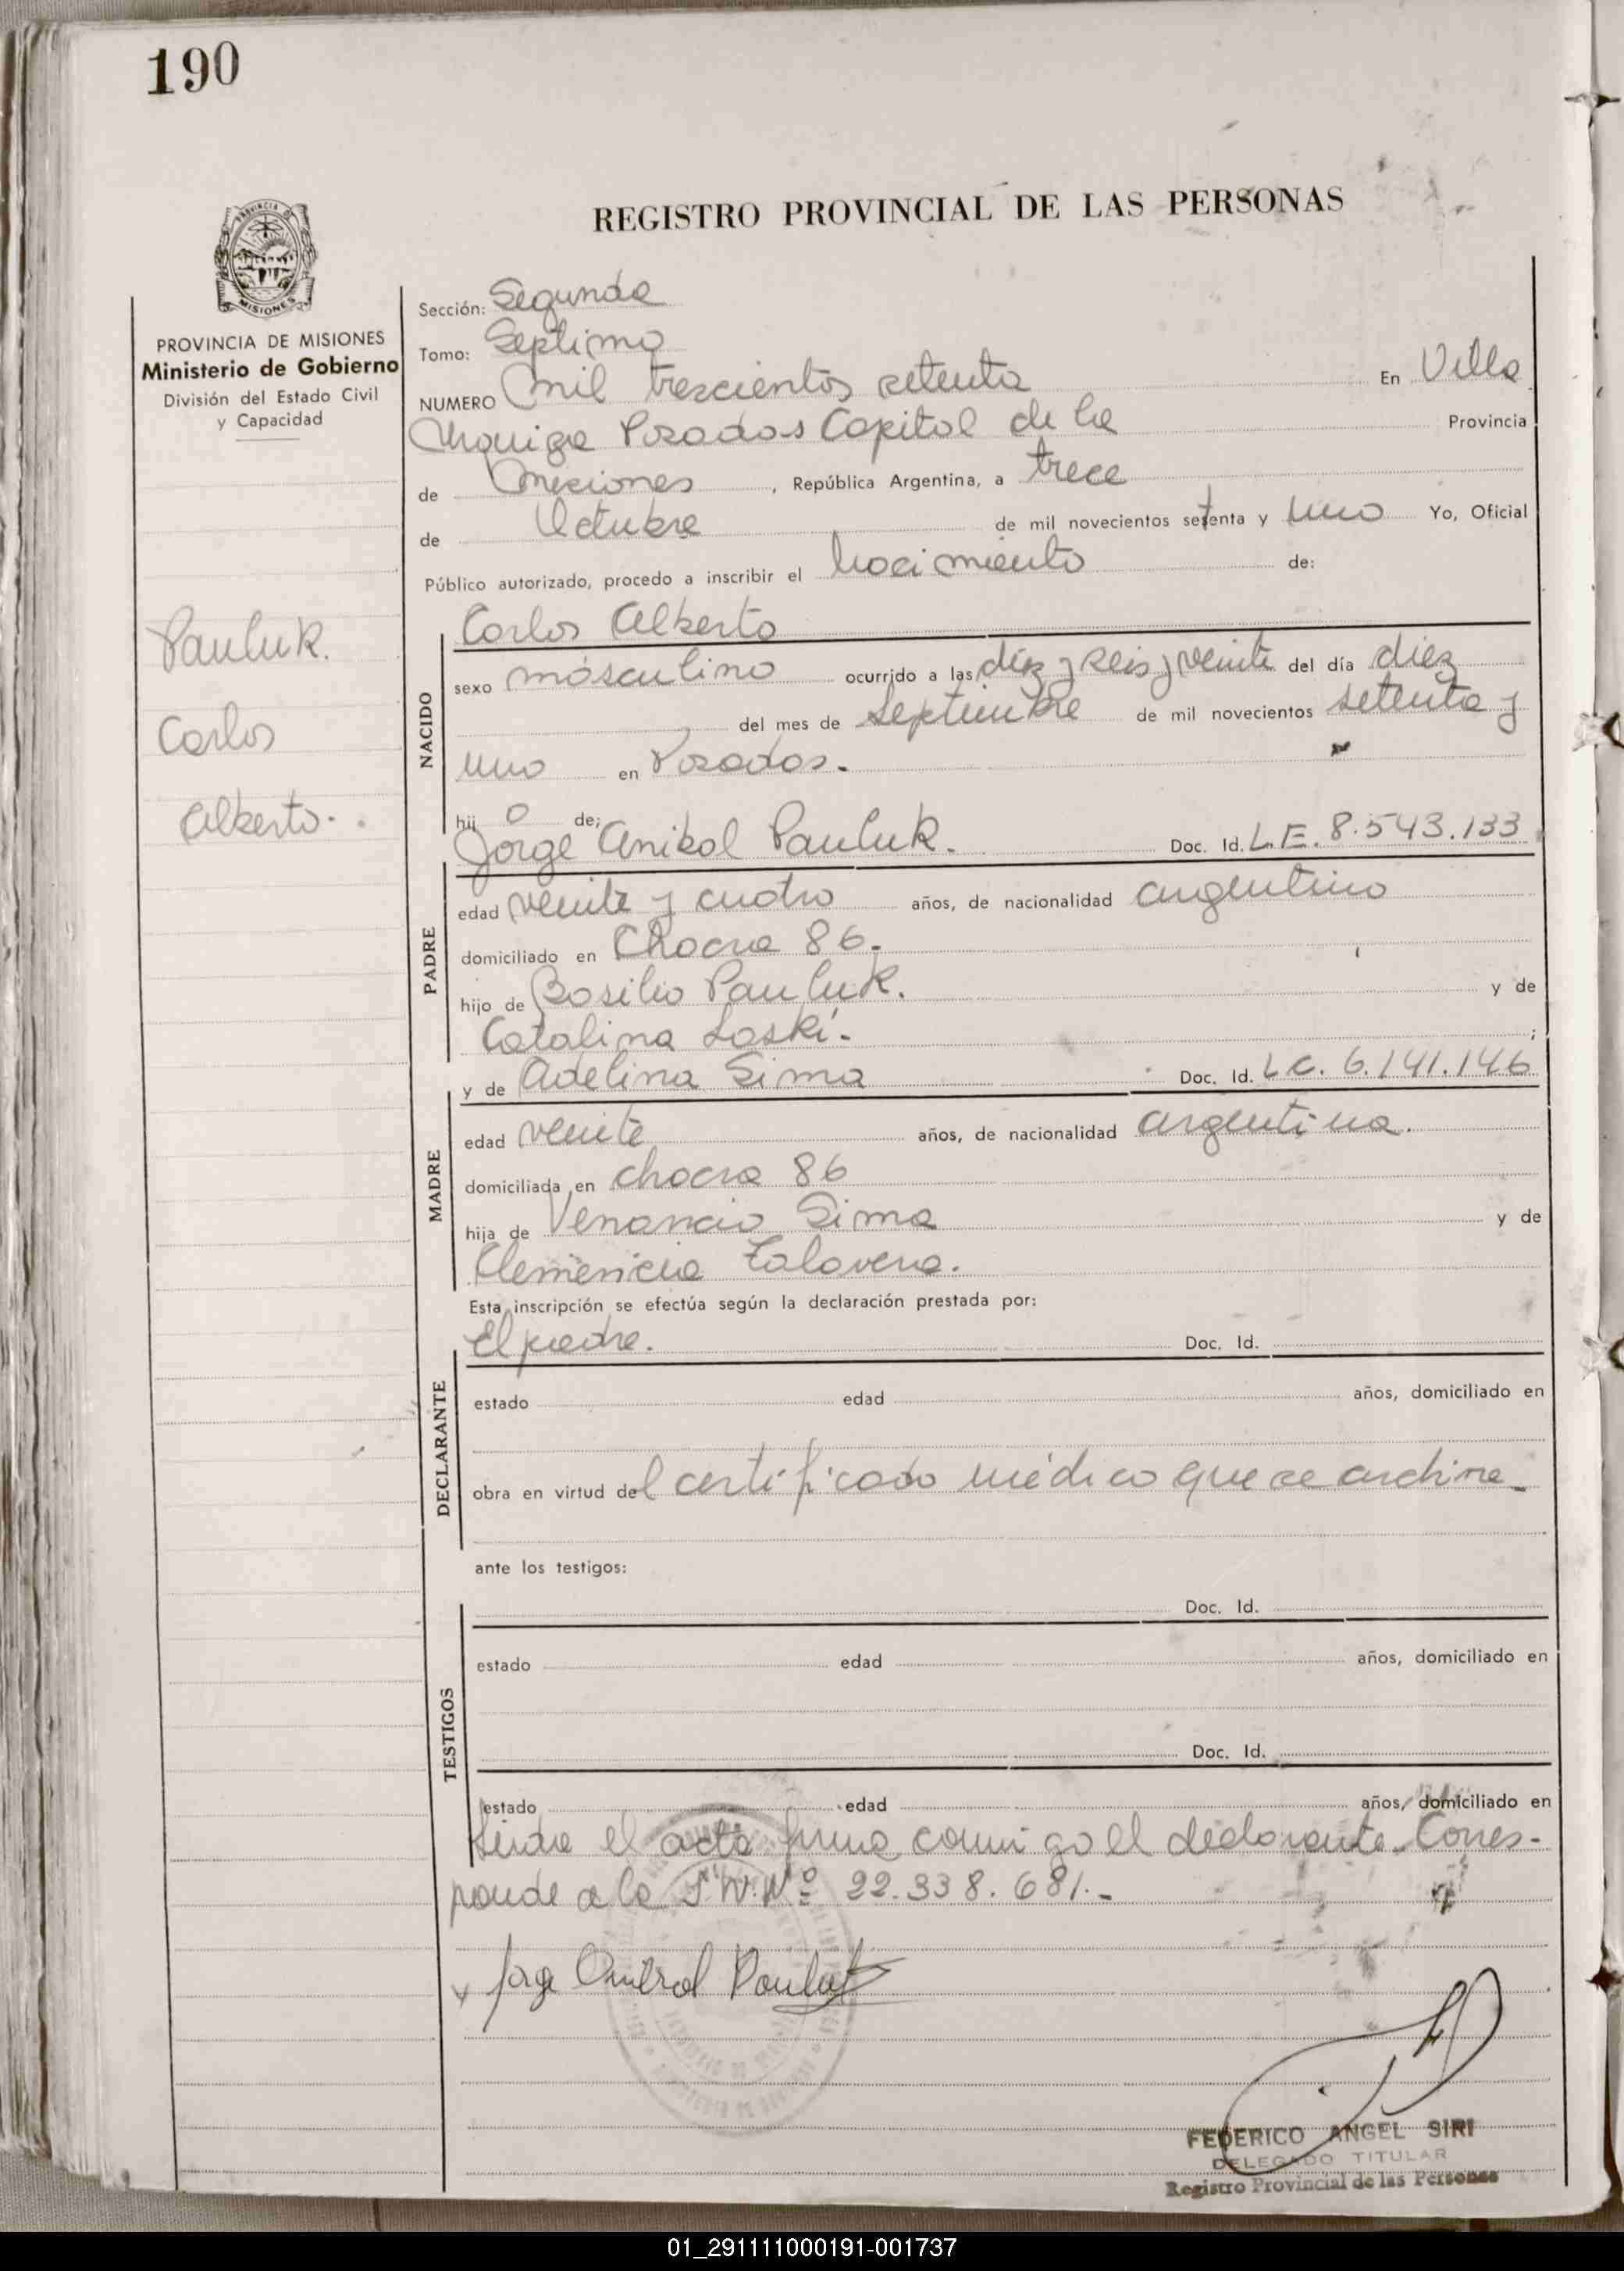 190
REGISTRO PROVINCIAL DE LAS PERSONAS
PROVINCIA DE MISIONES
Ministerio de Gobierno
División del Estado Civil
y Capacidad
Pauluk.
Carlos
Alberto.
Sección: Segunda
Tomo: Septimo
NUMERO Mil trescientos setenta En Villa
Urquiza Posadas Capital de la Provincia
de Misiones, República Argentina, a trece
de Octubre de mil novecientos setenta y uno Yo, Oficial
Público autorizado, procedo a inscribir el Nacimiento de:
Carlos Alberto
NACIDO
sexo masculino ocurrido a las diez y seis y veinte del día diez
del mes de Septiembre de mil novecientos setenta y
uno en Posadas.
hij o de;
Jorge Anibal Pauluk. Doc. Id. L.E. 8.543.133
PADRE
edad veinte y cuatro años, de nacionalidad argentino
domiciliado en Chacra 86.
hijo de Basilio Pauluk. y de
Catalina Laski. ;
y de Adelina Sima Doc. Id. L.C. 6.141.146
MADRE
edad veinte años, de nacionalidad argentina.
domiciliada en chacra 86
hija de Venancio Sima y de
Clemencia Talavera.
Esta inscripción se efectúa según la declaración prestada por:
El padre. Doc. Id.
DECLARANTE
estado edad años, domiciliado en
obra en virtud del certificado médico que se archiva.
ante los testigos:
Doc. Id.
TESTIGOS
estado edad años, domiciliado en
Doc. Id.
estado edad años, domiciliado en
Leida el acta firma conmigo el declarante. Corres-
ponde a la Nº 22.338.681.-
Jorge Anibal Pauluk
FEDERICO ANGEL SIRI
DELEGADO TITULAR
Registro Provincial de las Personas
01_291111000191-001737